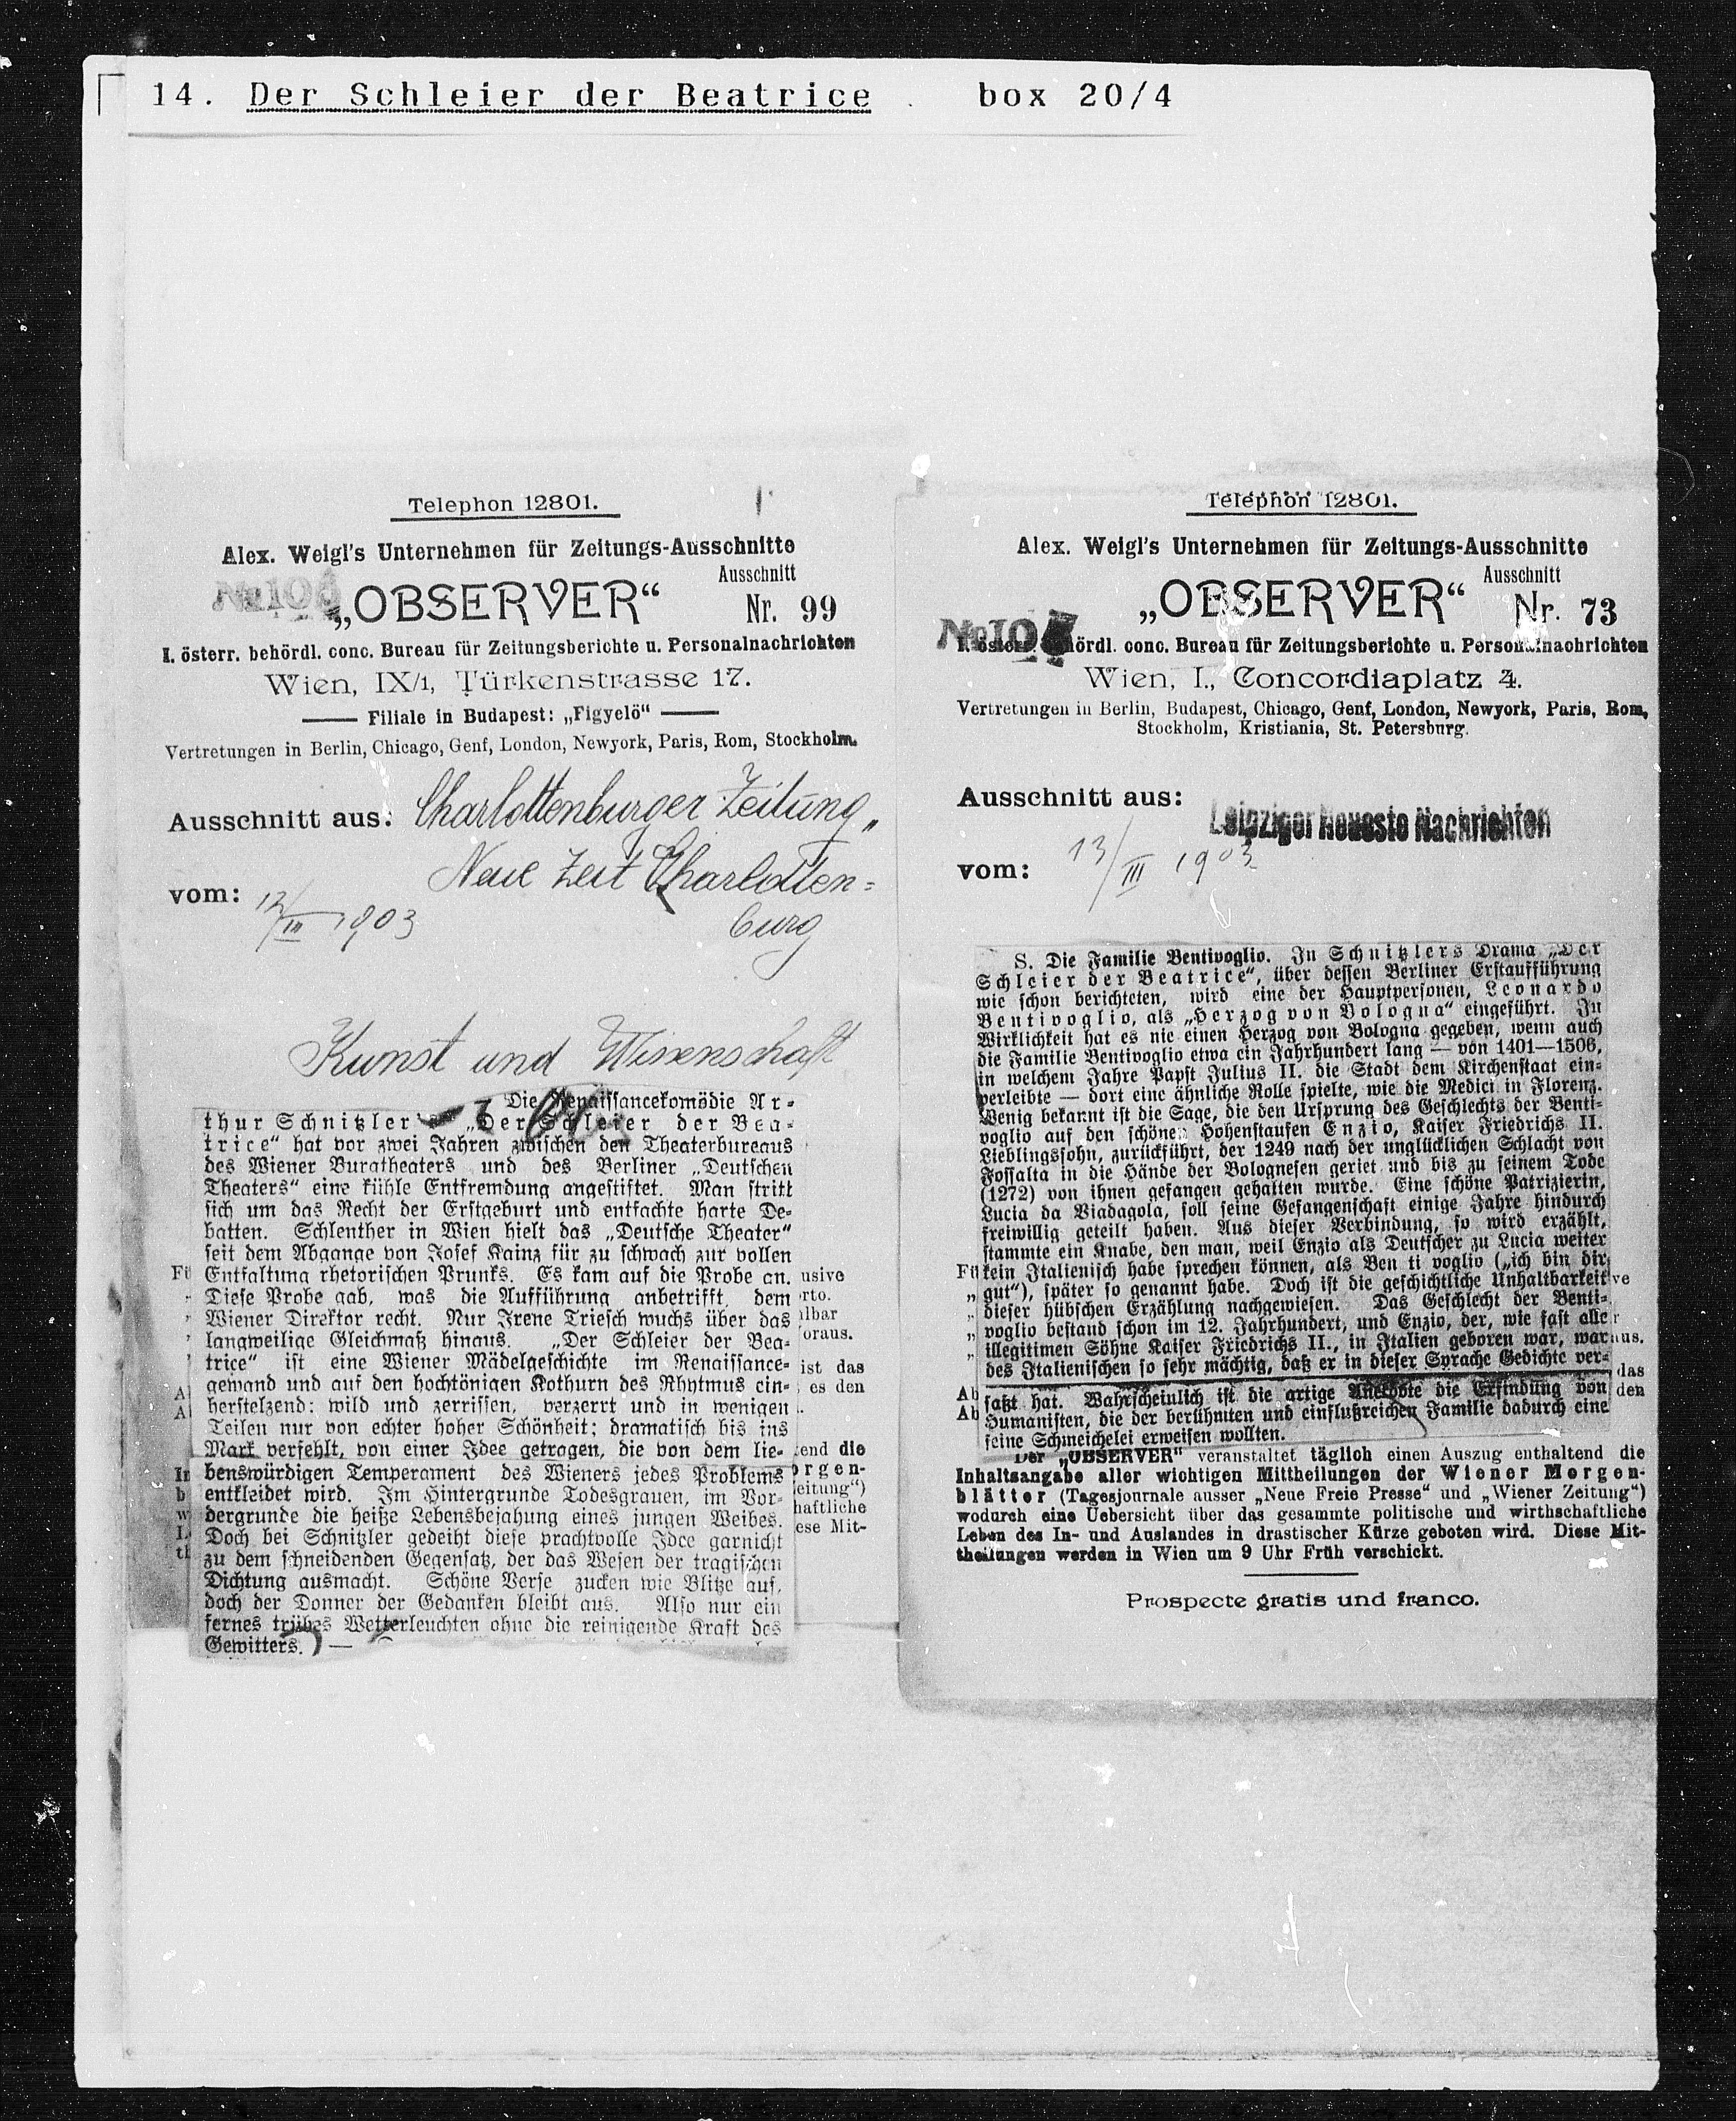 14. Der Schleier der Beatrice box 20/4
Telephon 12801.
Alex. Weigl's Unternehmen für Zeitungs-Ausschnitte
Ausschnitt
„OBSERVER“ Nr. 99
I. österr. behördl. conc. Bureau für Zeitungsberichte u. Personalnachrichten
Wien, IX/1, Türkenstrasse 17.
Filiale in Budapest: „Figyelö“
Vertretungen in Berlin, Chicago, Genf, London, Newyork, Paris, Rom, Stockholm.
Ausschnitt aus: Charlottenburger Zeitung„
Neue Zeit Charlotten=
burg
vom: 12/III 1903
Kunst und Wissenschaft
Die Renaissancekomödie Ar-
thur Schnitzler's „Der Schleier der Bea-
trice“ hat vor zwei Jahren zwischen den Theaterbureaus
des Wiener Burgtheaters und des Berliner „Deutschen
Theaters“ eine kühle Entfremdung angestiftet. Man stritt
sich um das Recht der Erstgeburt und entfachte harte De-
batten. Schlenther in Wien hielt das „Deutsche Theater“
seit dem Abgange von Josef Kainz für zu schwach zur vollen
Entfaltung rhetorischen Prunks. Es kam auf die Probe an.
Diese Probe gab, was die Aufführung anbetrifft, dem
Wiener Direktor recht. Nur Irene Triesch wuchs über das
langweilige Gleichmaß hinaus. „Der Schleier der Bea-
trice“ ist eine Wiener Mädelgeschichte im Renaissance-
gewand und auf den hochtönigen Kothurn des Rhytmus ein-
herstelzend: wild und zerrissen, verzerrt und in wenigen
Teilen nur von echter hoher Schönheit; dramatisch bis ins
Mark verfehlt, von einer Idee getragen, die von dem lie-
benswürdigen Temperament des Wieners jedes Problems
entkleidet wird. Im Hintergrunde Todesgrauen, im Vor-
dergrunde die heiße Lebensbejahung eines jungen Weibes.
Doch bei Schnitzler gedeiht diese prachtvolle Idee garnicht
zu dem schneidenden Gegensatz, der das Wesen der tragischen
Dichtung ausmacht. Schöne Verse zucken wie Blitze auf,
doch der Donner der Gedanken bleibt aus. Also nur ein
fernes trübes Wetterleuchten ohne die reinigende Kraft des
Gewitters. —
Telephon 12801.
Alex. Weigl's Unternehmen für Zeitungs-Ausschnitte
Ausschnitt
„OBSERVER“ Nr. 73
I. österr. behördl. conc. Bureau für Zeitungsberichte u. Personalnachrichten
Wien, I., Concordiaplatz 4.
Vertretungen in Berlin, Budapest, Chicago, Genf, London, Newyork, Paris, Rom,
Stockholm, Kristiania, St. Petersburg.
Ausschnitt aus: Leipziger Neueste Nachrichten
vom: 13/III 1903
S. Die Familie Bentivoglio. In Schnitzlers Drama „Der
Schleier der Beatrice“, über dessen Berliner Erstaufführung
wie schon berichteten, wird eine der Hauptpersonen, Leonardo
Bentivoglio, als „Herzog von Bologna“ eingeführt. In
Wirklichkeit hat es nie einen Herzog von Bologna gegeben, wenn auch
die Familie Bentivoglio etwa ein Jahrhundert lang — von 1401—1506,
in welchem Jahre Papst Julius II. die Stadt dem Kirchenstaat ein-
verleibte — dort eine ähnliche Rolle spielte, wie die Medici in Florenz.
Wenig bekannt ist die Sage, die den Ursprung des Geschlechts der Benti-
voglio auf den schönen Hohenstaufen Enzio, Kaiser Friedrichs II.
Lieblingssohn, zurückführt, der 1249 nach der unglücklichen Schlacht von
Fossalta in die Hände der Bolognesen geriet und bis zu seinem Tode
(1272) von ihnen gefangen gehalten wurde. Eine schöne Patrizierin,
Lucia da Viadagola, soll seine Gefangenschaft einige Jahre hindurch
freiwillig geteilt haben. Aus dieser Verbindung, so wird erzählt,
stammte ein Knabe, den man, weil Enzio als Deutscher zu Lucia weiter
kein Italienisch habe sprechen können, als Ben ti voglio („ich bin dir
gut“), später so genannt habe. Doch ist die geschichtliche Unhaltbarkeit
dieser hübschen Erzählung nachgewiesen. Das Geschlecht der Benti-
voglio bestand schon im 12. Jahrhundert, und Enzio, der, wie fast alle
illegitimen Söhne Kaiser Friedrichs II., in Italien geboren war, war
des Italienischen so sehr mächtig, daß er in dieser Sprache Gedichte ver-
faßt hat. Wahrscheinlich ist die artige Anekdote die Erfindung von
Humanisten, die der berühmten und einflußreichen Familie dadurch eine
feine Schmeichelei erweisen wollten.
Der „OBSERVER“ veranstaltet täglich einen Auszug enthaltend die
Inhaltsangabe aller wichtigen Mittheilungen der Wiener Morgen-
blätter (Tagesjournale ausser „Neue Freie Presse“ und „Wiener Zeitung“)
wodurch eine Uebersicht über das gesammte politische und wirthschaftliche
Leben des In- und Auslandes in drastischer Kürze geboten wird. Diese Mit-
theilungen werden in Wien um 9 Uhr Früh verschickt.
Prospecte gratis und franco.